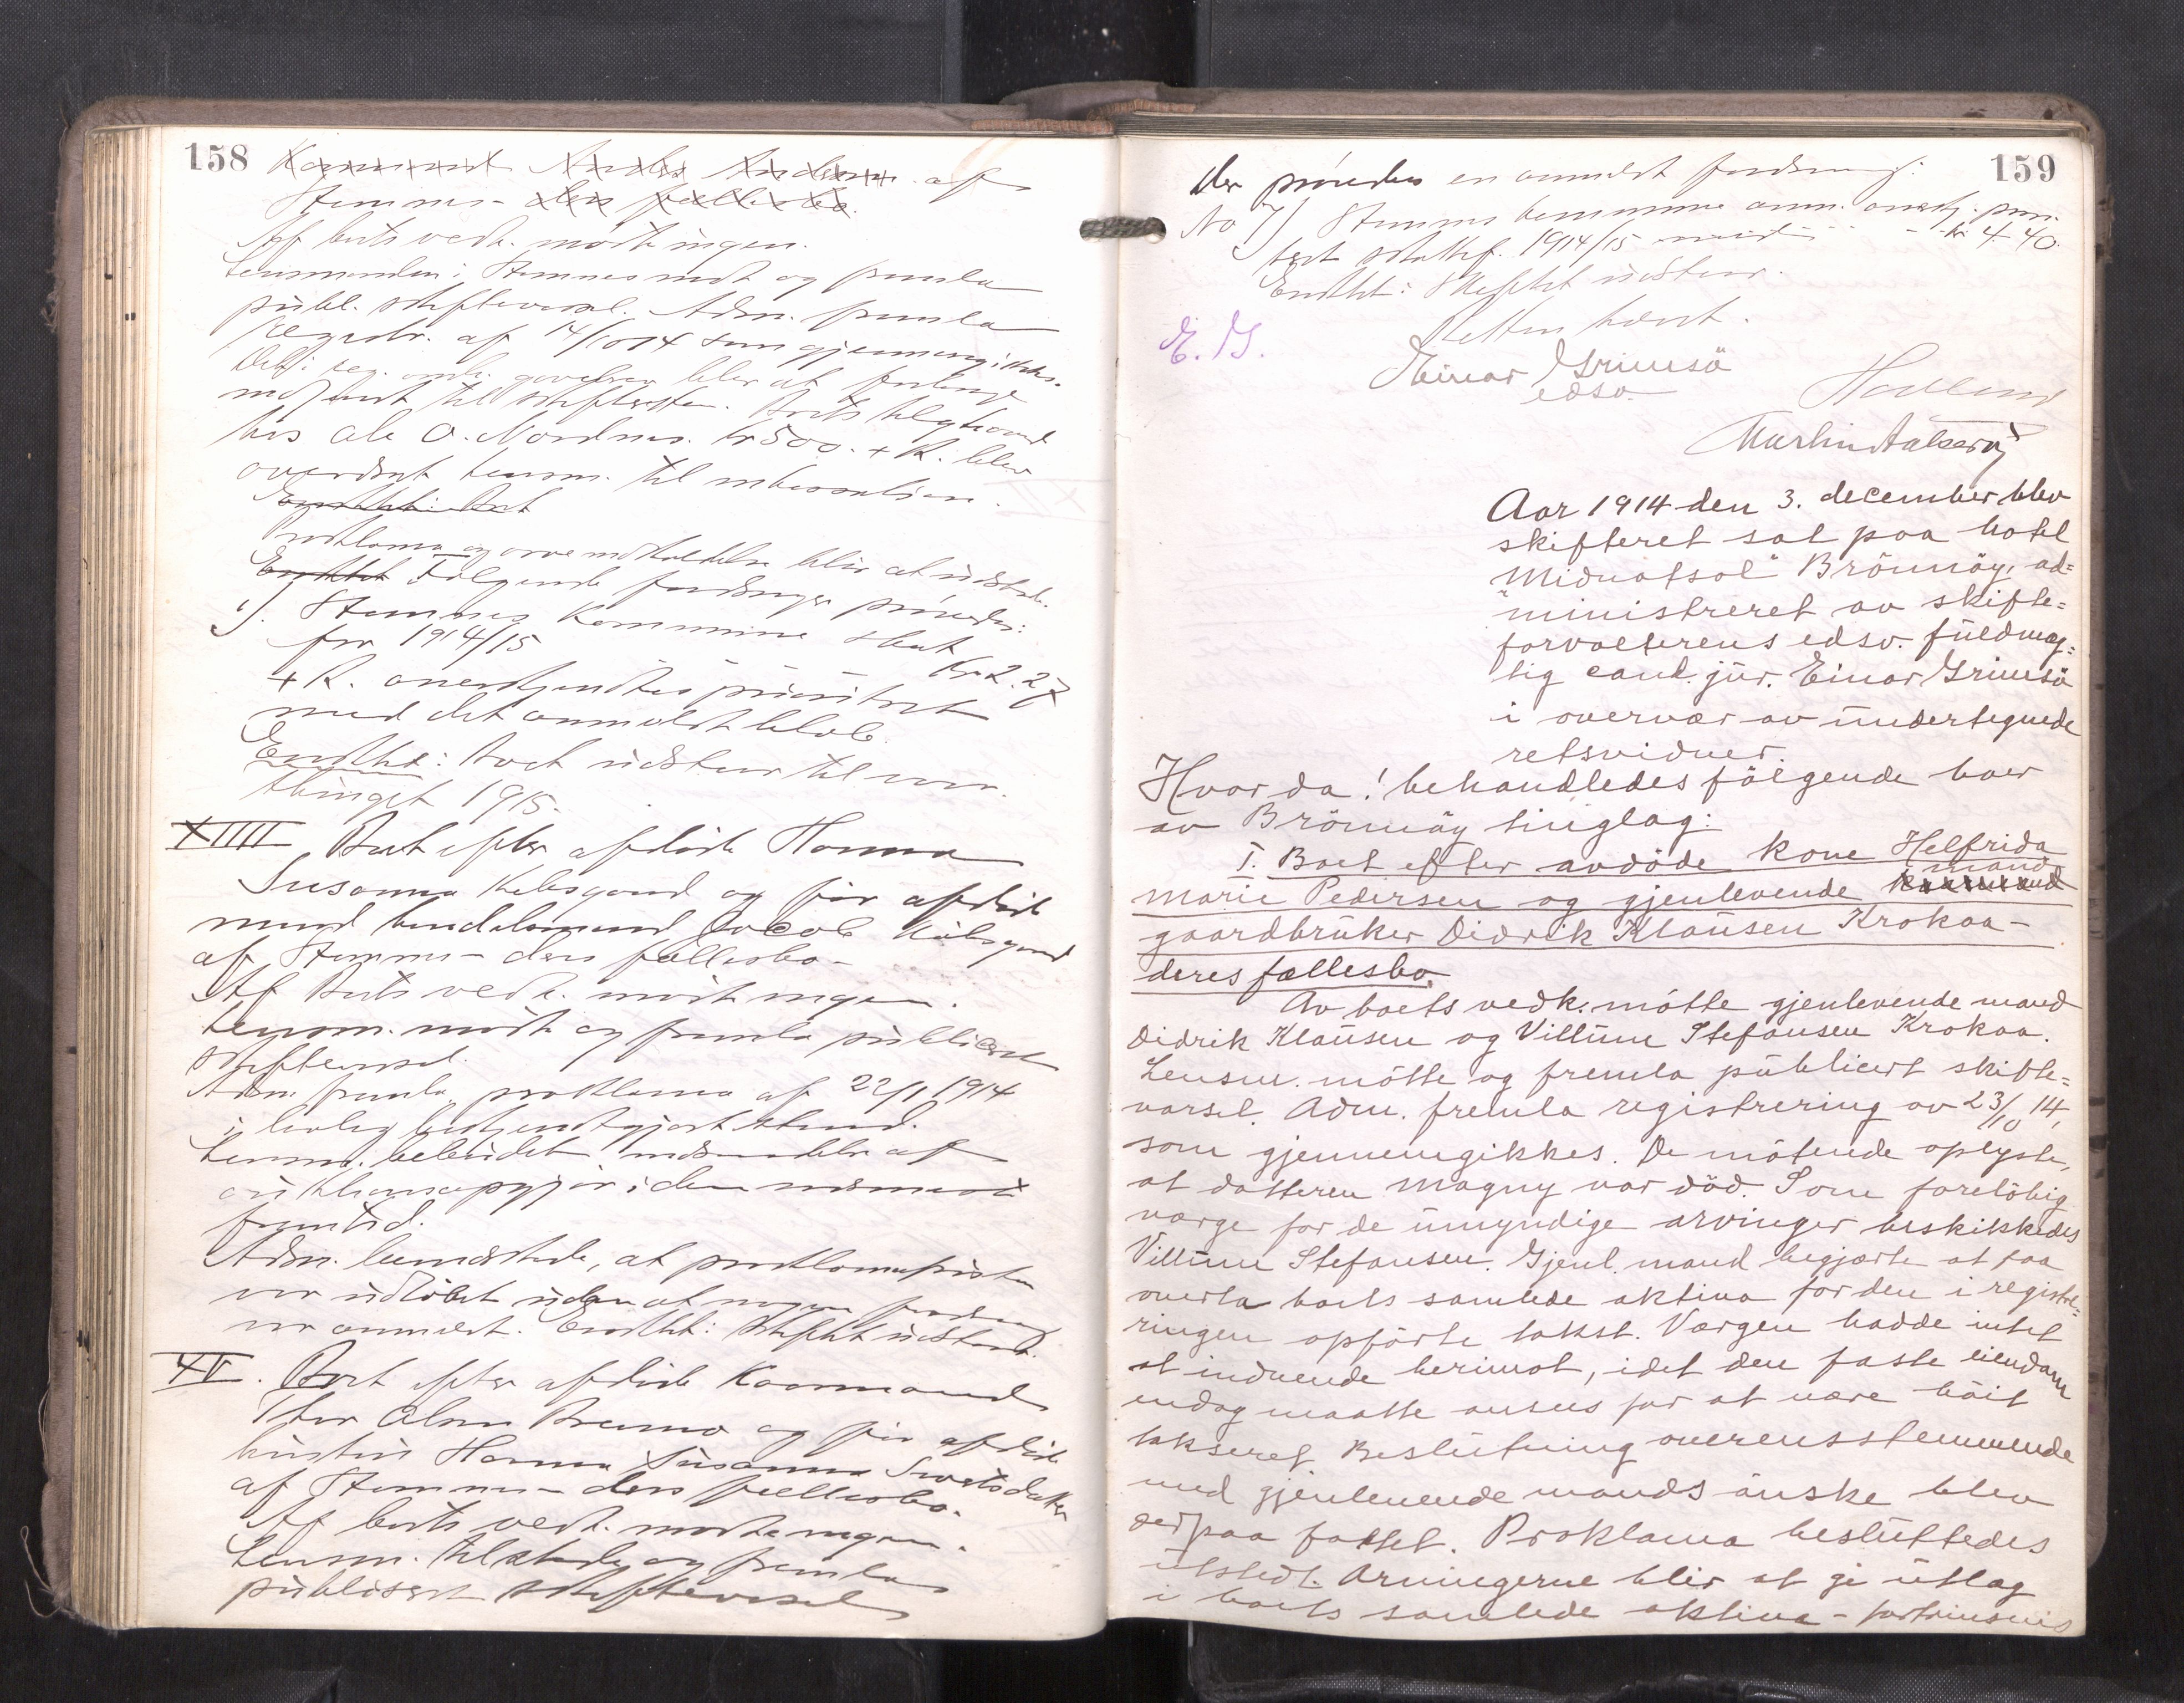 158
Kaarmand Anders Andersen af
Stamnes - deres fællesbo.
Af boets vedk. mødte ingen.
Lensmanden i Stamnes mødt og fremla
publ. skiftevarsel. Adm. fremla
registr. af 14/10 14 som gjennemgikkes.
blev at forlange
indsendt til skifteretten. Boets tilgodehavende
hos Ole O. Nordnes kr 500 + R. blev
overdrat lensm. til inkassation.
Proklama og arve indkaldelse blir at utstede.
Eragtet Følgende fordringer prøvedes:
1). Stamnes Kommune skat
for 1914/15 Kr 2.27
+ R. anerkjendtes prioritet
med det anmeldte beløb.
Eragtet: Boet utstaar til
thinget 1915.
XIIIII Boet efter afdøde Hanna
Susanna Kibsgaard og før afdøde
mand handelsmand Jacob Kibsgaard
af Stamnes - deres fællesbo -
Af Boets vedk. mødte ingen.
Lensm. mødte og fremla publicert
skiftevarsel.
Adm. fremla proklama af 22/1 1914
i lovlig bekjendtgjort stand.
Lensm. bebudet indsendelse af
auktionsopgjør i den nærmeste
fremtid.
Adm. bemerkede, at proklamafristen
var utløbet uden at nogen fordring
var anmeldt. Eragtet: Skiftet utstaar.
XV. Boet efter afdøde Kaarmand
Thor Olsen og før afdøde
hustru Hanna Susanna Sivertsdatter
af Stamnes - deres fællesbo.
Af boets vedk. mødte ingen.
Lensm. tilstede og fremla
publisert skiftevarsel
159
der prøvedes en anmeldt fordring:
No 7) Stamnes kommune anm.
skat 1914/15 kr 4.40.
Eragtet: Skiftet utstaar.
Retten hævet.
E. G.
Einar Grimsö
edsv.
Martin
Aar 1914 den 3. december blev
skifteret sat paa hotel
"Midnatsol" Brönnöy, ad=
ministreret av skifte=
forvalterens edsv. fuldmæg=
tig cand. jur. Einar Grimsö
i overvær av undertegnede
retsvidner.
Hvor da! behandledes fölgende boer
av Brönnöy tinglag:
I. Boet efter avdöde kone Helfrida
Marie Pedersen og gjenlevende mand
gaardbruker Didrik Klausen Krokaa -
deres fællesbo.
Av boets vedk. mötte gjenlevende mand
Didrik Klausen og Villum Stefansen Krokaa.
Lensm. mötte og fremla publicert skifte=
varsel. Adm. fremla registrering av 23/10 14,
som gjennemgikkes. De mötende oplyste,
at datteren Magny var död. Som forelöbig
værge for de umyndige arvinger beskikkedes
Villum Stefansen. Gjenl. mand begjærte at faa
overta boets samlede aktiva for den i registre=
ringen opförte takst. Værgen hadde intet
at indvende herimot, idet den faste eiendom
endog maatte ansees for at være höit
takseret. Beslutning overensstemmende
med gjenlevende mands önske blev
derpaa fattet. Proklama besluttedes
utstedt. Arvingerne blir at gi utlæg
i boets samlede aktiva - fortrinsvis